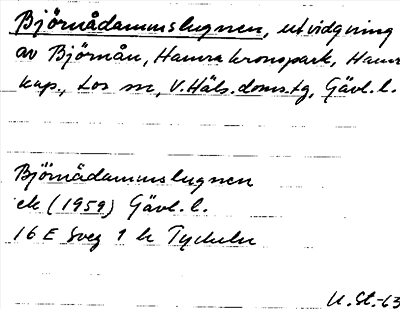 Björnådammslugnen, utvidgning
av Björnån, Hamra kronopark, Hamra
kap., Los sn, V. Häls. doms.tg, Gävl. l.
Björnådammslugnen
ek (1959) Gävl. l.
16 E Sveg 1 h Tyckeln
U. St.-63